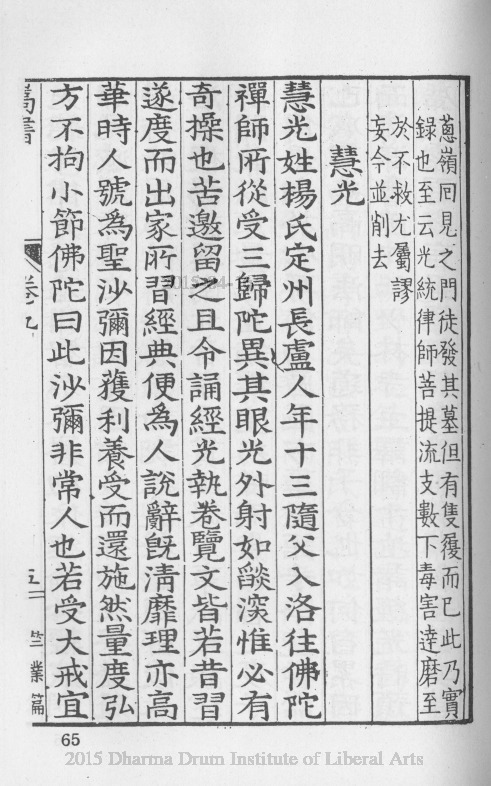 蔥嶺回見之門徒發其墓但有隻履而已此乃實
錄也至云光統律師菩提流支數下毒害達磨至
於不救尤屬謬
妄今並削去
慧光
慧光姓楊氏定州長盧人年十三隨父入洛往佛陀
禪師所從受三歸陀異其眼光外射如燄深惟必有
奇操也苦邀留之且令誦經光執卷覽文皆若昔習
遂度而出家所習經典便為人說辭旣淸靡理亦高
華時人號為聖沙彌因獲利養受而還施然量度弘
方不拘小節佛陀曰此沙彌非常人也若受大戒宜
卷九
竺業篇
65
2015 Dharma Drum Institute of Liberal Arts